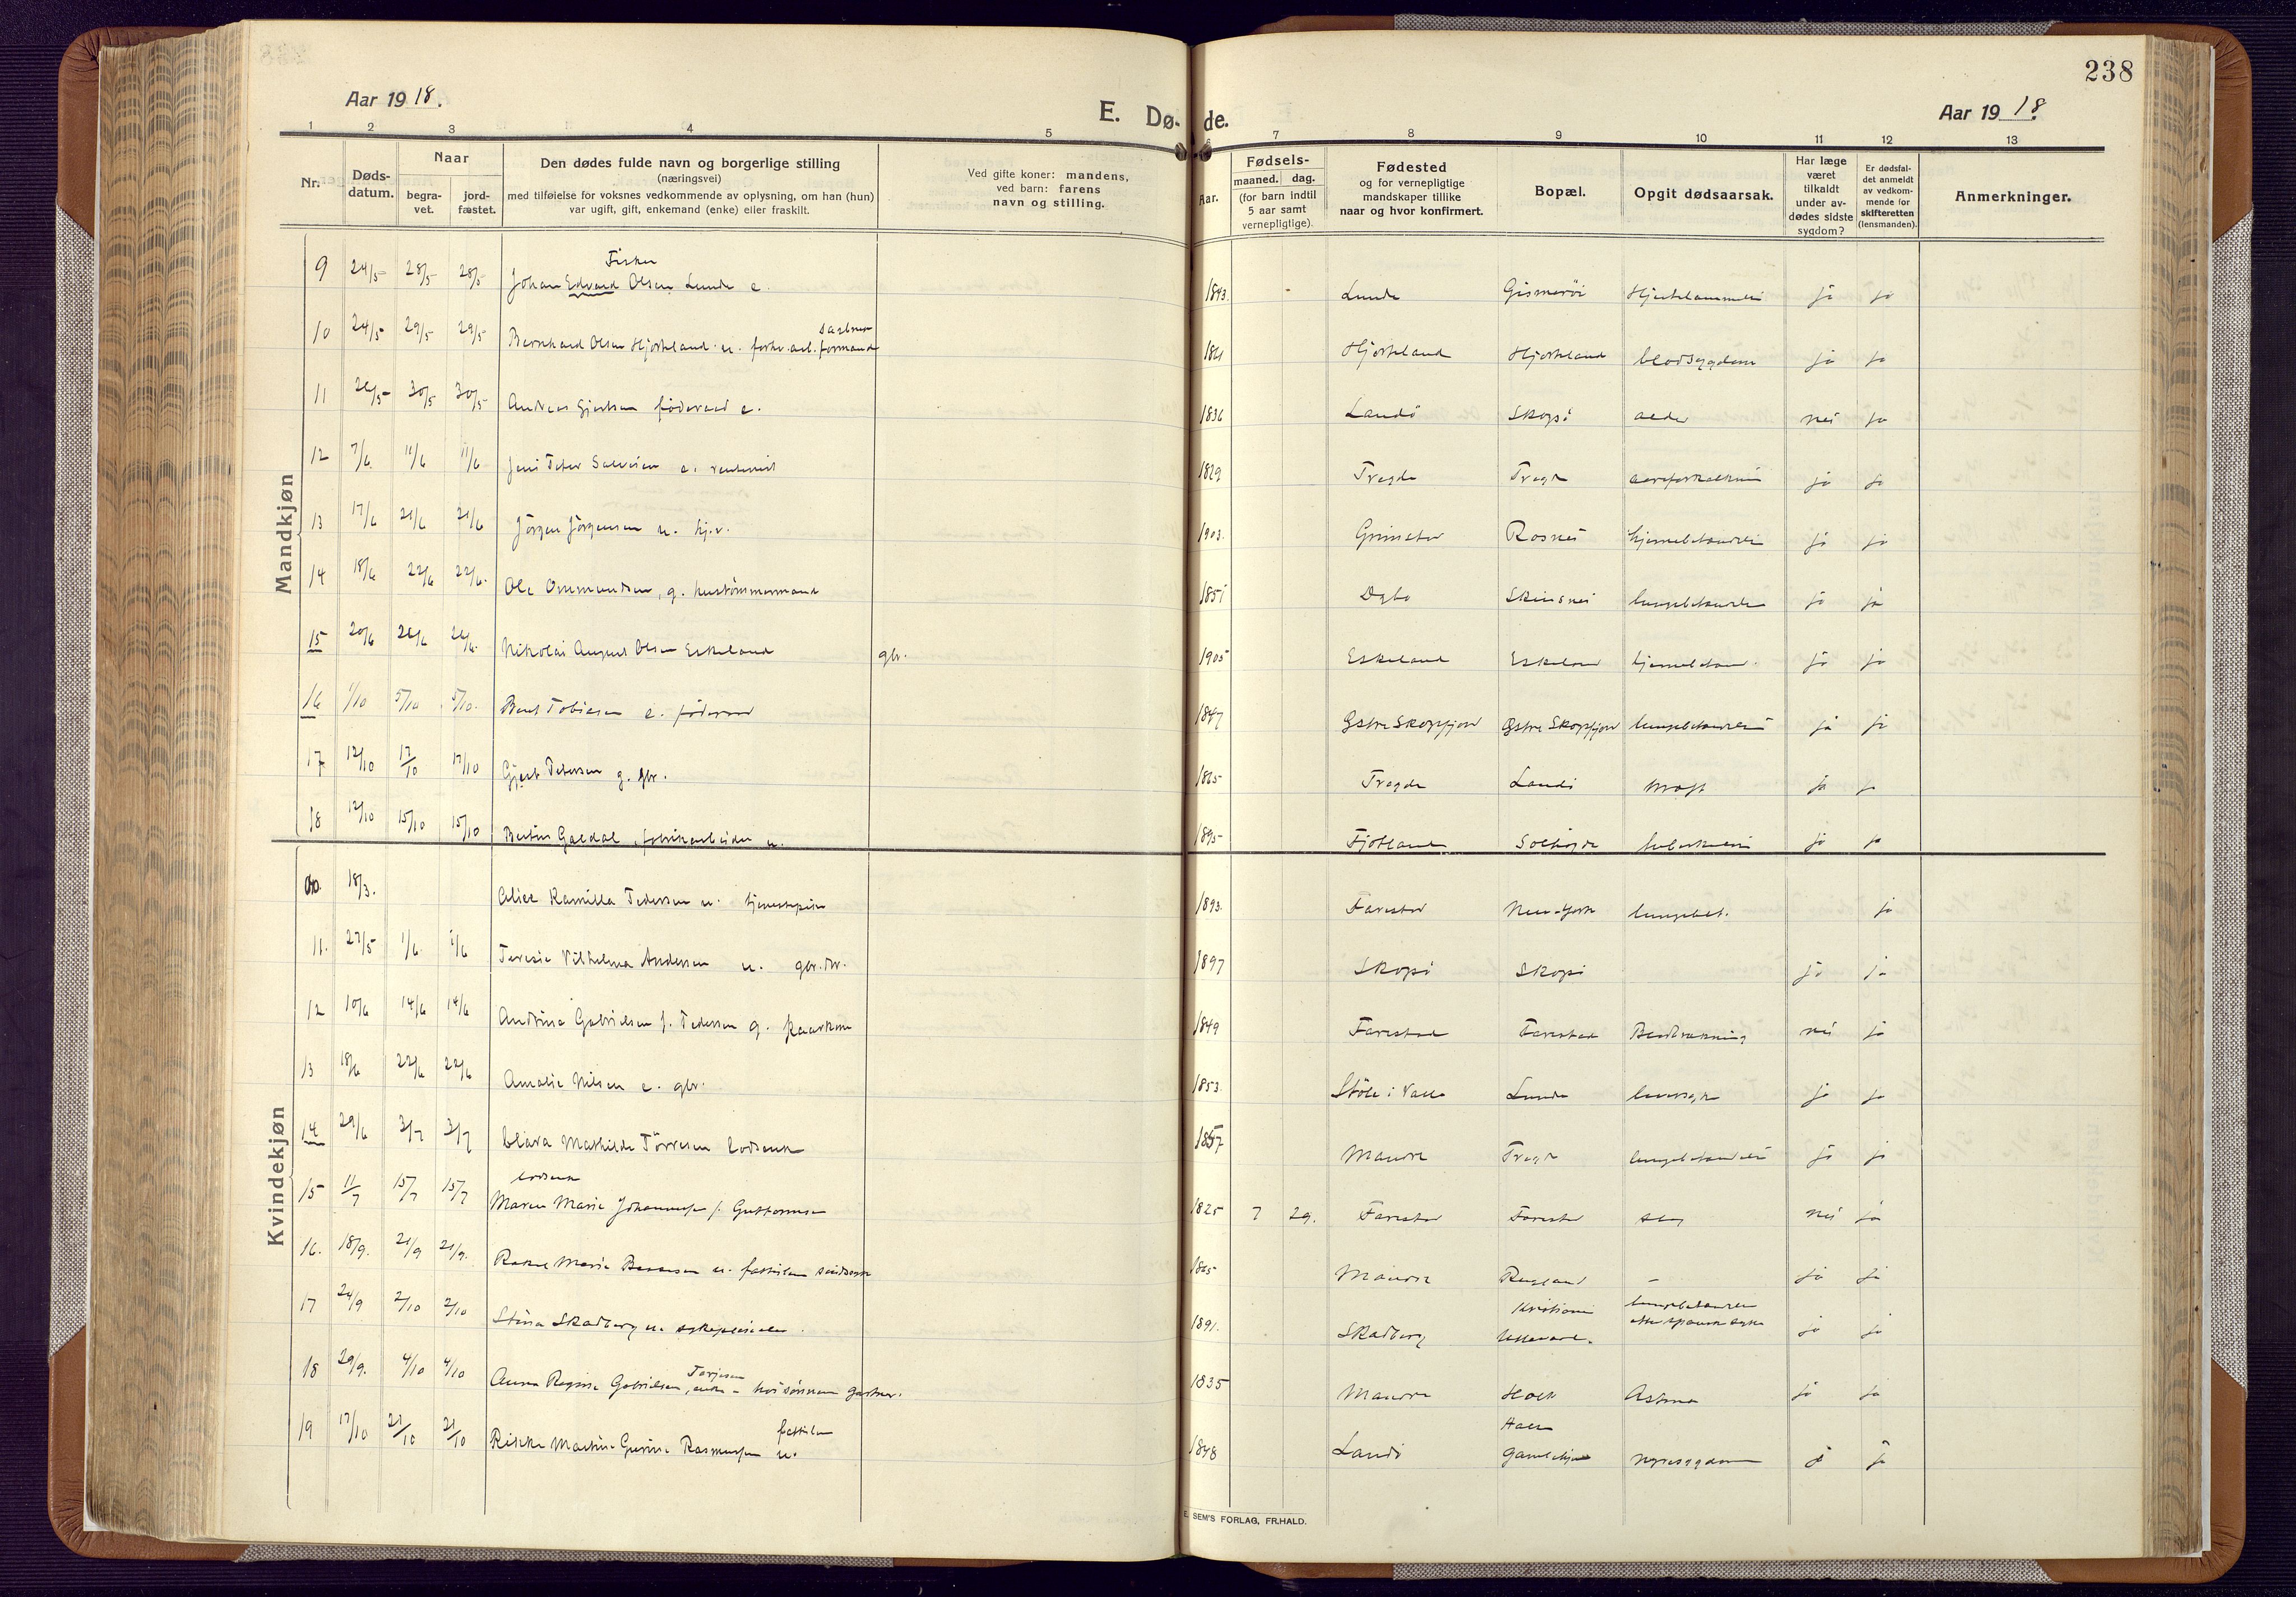 238
Aar 1918.
E. Dø- de.
Aar 1918.
1 2 3 4 5 6 7 8 9 10 11 12 13
Nr.
Døds-
datum.
Naar
begra-
vet.
jord-
fæstet.
Den dødes fulde navn og borgerlige stilling
(næringsvei)
med tilføielse for voksnes vedkommende av oplysning, om han (hun)
var ugift, gift, enkemand (enke) eller fraskilt.
Ved gifte koner: mandens,
ved barn: farens
navn og stilling.
Aar.
Fødsels-
maaned. dag.
(for barn indtil
5 aar samt
vernepligtige).
Fødested
og for vernepligtige
mandskaper tillike
naar og hvor konfirmert.
Bopæl.
Opgit dødsaarsak.
Har læge
været
tilkaldt
under av-
dødes sidste
sygdom?
Er dødsfal-
det anmeldt
av vedkom-
mende for
skifteretten
(lensmanden).
Anmerkninger.
Mandkjøn
Fisker
9 24/5 28/5 28/5 Johan Edvard Olsen Lunde e. 1843. Lunde Gismerøi ja ja
10 24/5 29/5 29/5 Bernhard Olsen Hjorteland u. formand Hjorteland Hjorteland blodsygdom ja ja
11 26/5 30/5 30/5 Andreas Gjertsen føderaad e. 1836 Landö Skogsö alder nei ja
12 7/6 11/6 11/6 Jens Peter Salvesen e. rentenist 1829 Tregde Tregde aareforkalkning ja ja
13 17/6 21/6 21/6 Jörgen Jörgensen u. hj.v. 1903. Grimstad Rosnes hjernebetændelse ja ja
14 18/6 22/6 22/6. Ole Ommundsen, g. hustømmermand 1851 Dybo Skinsnes lungebetændelse ja ja
15 20/6 26/6 26/6. Nikolai August Olsen Eskeland gbr. 1905 Eskeland Eskeland hjernebetænd. ja ja
16 1/10 5/10 5/10. Bent Tobiasen e. føderaad 1847 Østre Skogsfjord Østre Skogsfjord lungebetændelse ja ja
17 12/10 17/10 17/10 Gjert Petersen g. gbr. 1865 Tregde Landö ja ja
18 12/10 15/10 15/10 Bertin Galdal, fabrikarbeider u. 1895 Fjotland Solhögda tuberkulose ja ja
Kvindekjøn
10. 18/3. Alice Kamilla Pedersen u. tjenestepike 1893. Farestad New-York lungebet. ja
11. 27/5 1/6 1/6 Teresie Vilhelma Andersen u. gbr.dtr. 1897 Skogsö Skogsö ja ja
12 10/6 14/6 14/6 Andrine Gabrielsen f. Pedersen g. kaarkone 1849 Farestad Farestad nei ja
13 18/6 22/6 22/6 Amalie Nilsen e. gbr. 1853. Støle i Valle Lunde leversyke ja ja
14 29/6 3/7 3/7 Clara Mathilde Tørresen lodsenke 1857 Mandal Tregde lungebetændelse ja ja
lodsenke
15 11/7 15/7 15/7 Maren Marie Johannesen f. Guttormsen 1825 7 29. Farestad Farestad slag nei ja
16. 18/9. 21/9 21/9. Rakel Marie Berntsen u. fattiglem sindssyk 1865 Mandal Rugland – ja ja
17 24/9 2/10 2/10 Stina Skadberg u. sykepleierske. 1891. Skadberg Kristiania
Ullevaal. lungebetændelse
efter spansk syke ja ja
18 29/9. 4/10 4/10 Anna Regine Gabrielsen Torjesen, enke – gartner. 1835 Mandal Holt Astma ja ja
19 17/10 21/10 21/10 Rikke Martine Gurine Rasmussen u. fattiglem 1848 Landö Halse
Gamlehjem nyresygdom ja ja
E. SEM'S FORLAG, FR.HALD.